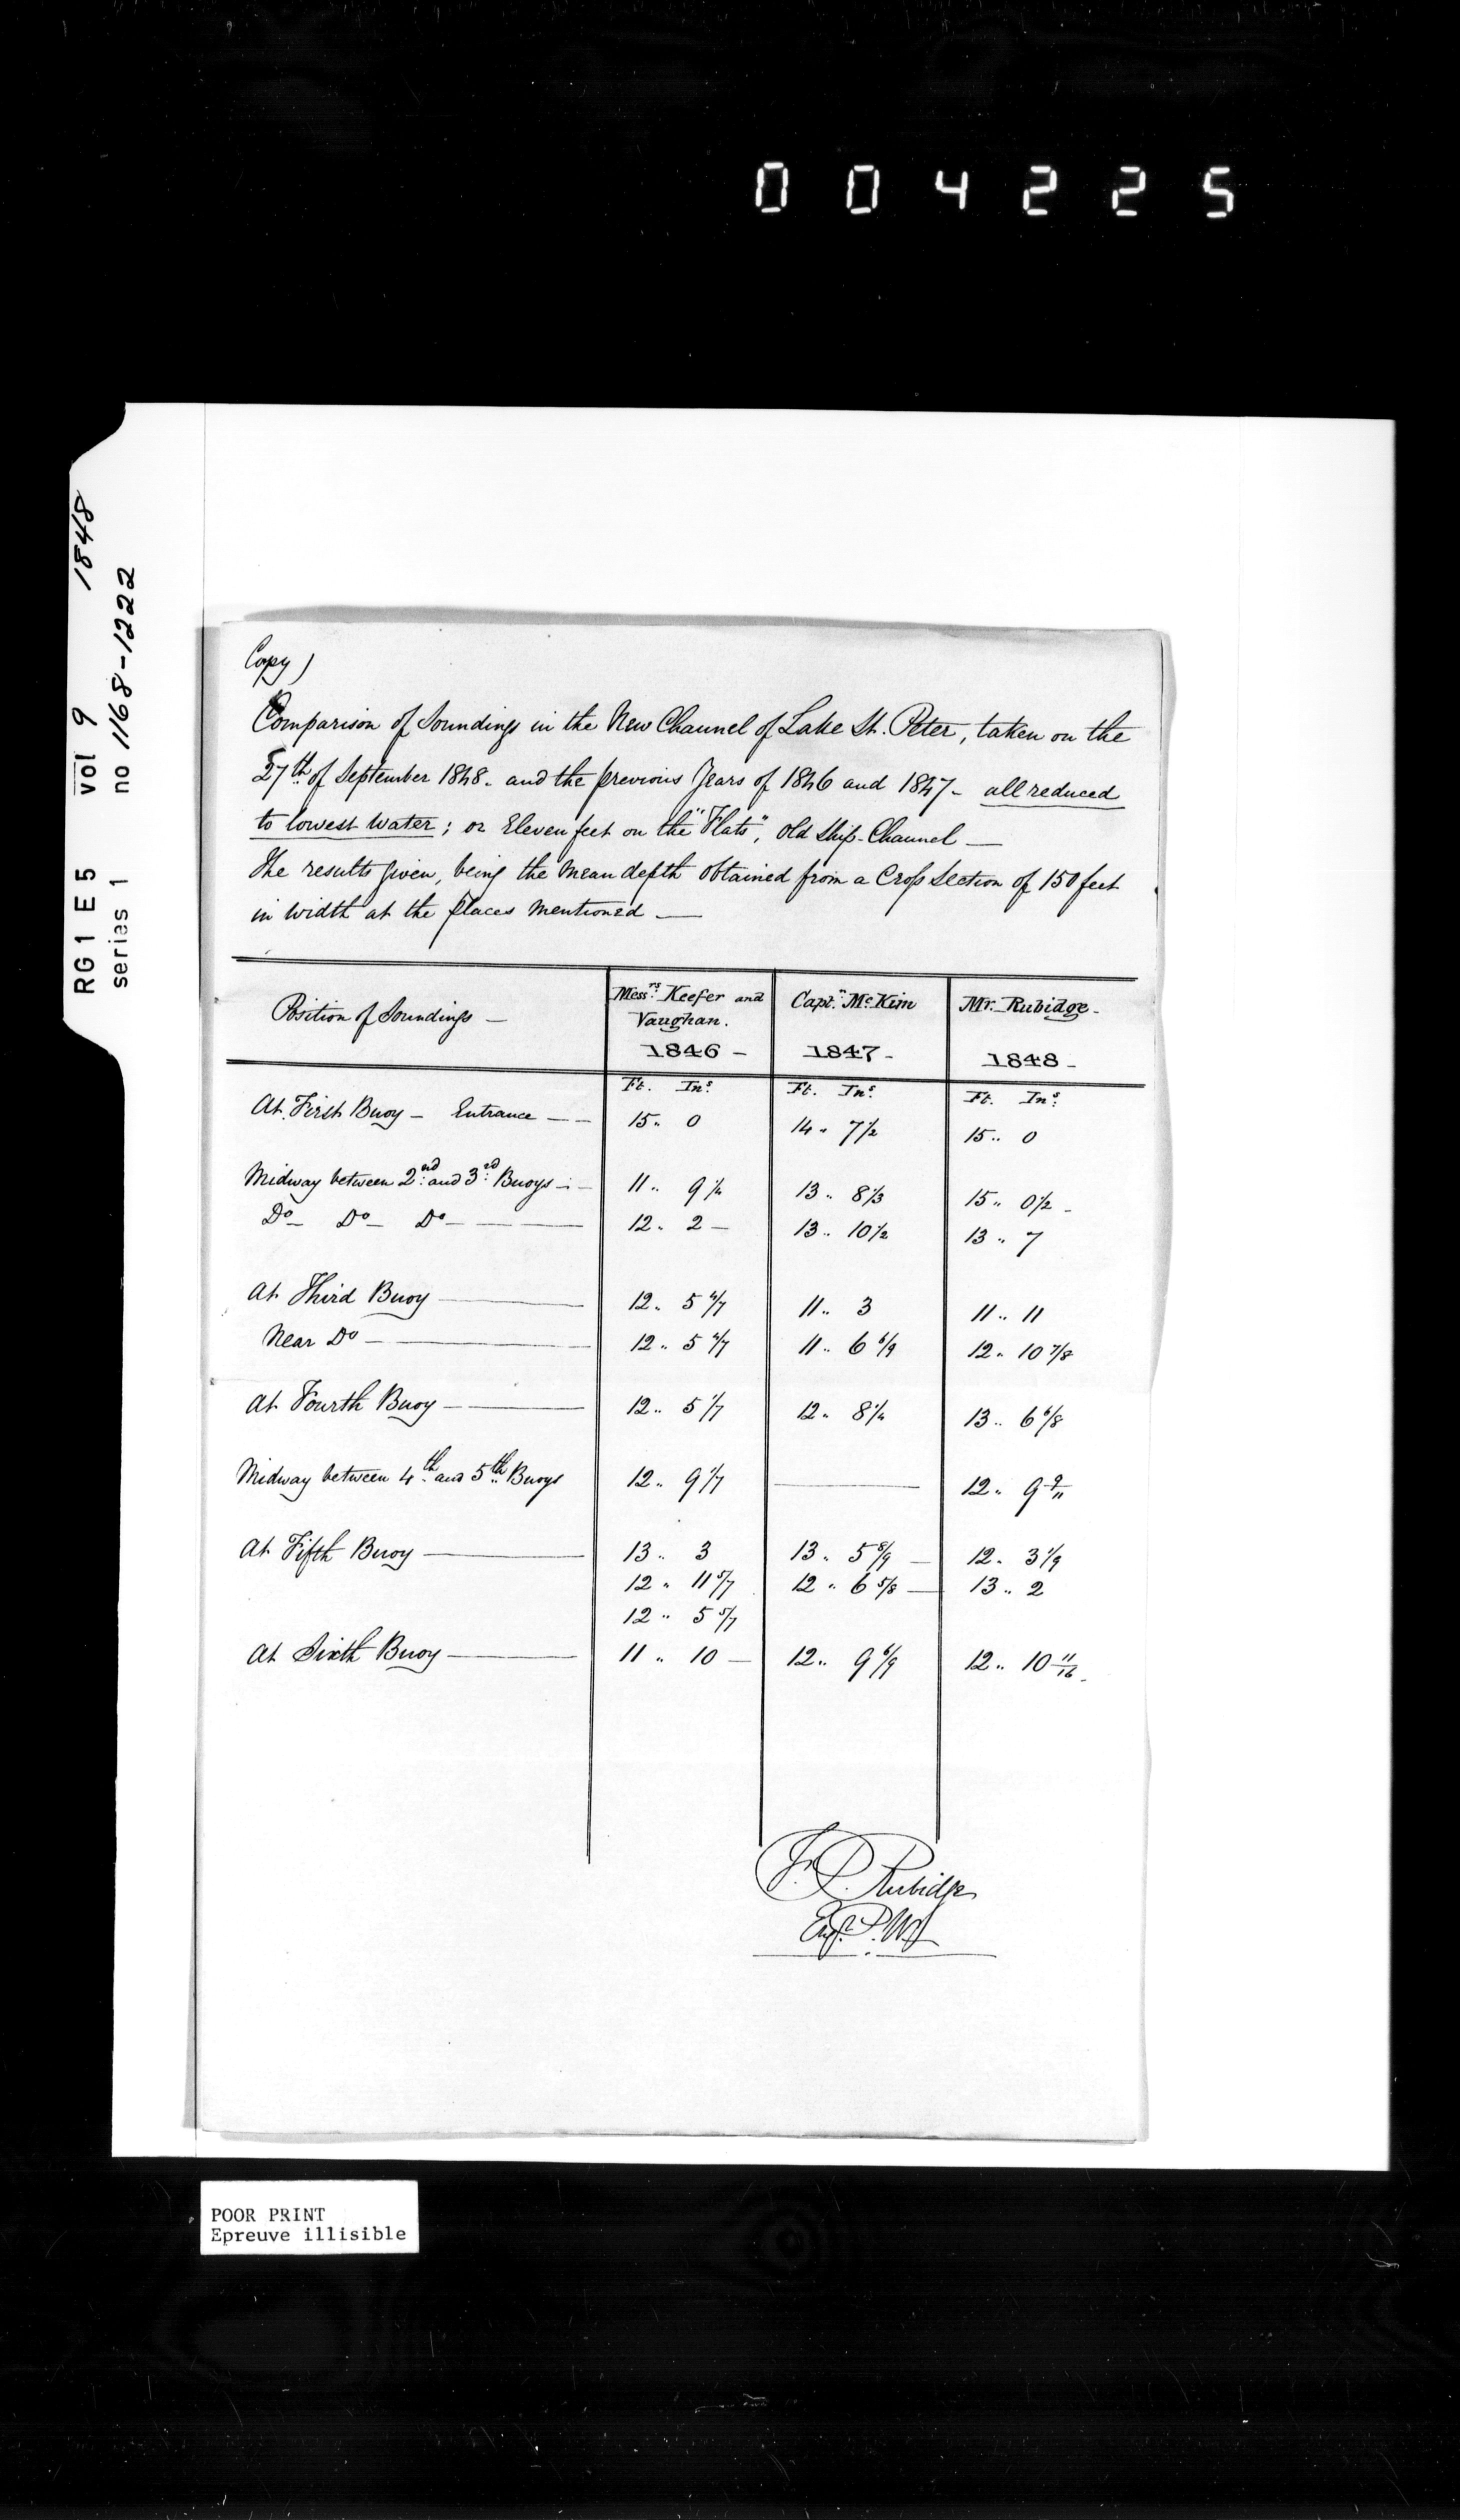 004225
RG 1 E 5 vol 9 1848
series 1 no 1168-1222
Copy)
Comparison of Soundings in the New Channel of Lake St. Peter, taken on the
27th of September 1848. and the previous Years of 1846 and 1847 - all reduced
to lowest water; or Eleven feet on the "Flats", Old Ship-Channel —
The results given, being the Mean depth obtained from a Cross Section of 150 feet
in width at the places mentioned —
Position of Soundings — Messrs. Keefer and Vaughan. 1846 - Captn. McKim 1847 - Mr. Rubidge - 1848 -
Ft. Ins. Ft. Ins. Ft. Ins.
At First Buoy — Entrance — — 15 .. 0 14 .. 7 1/2 15 .. 0
Midway between 2nd and 3rd Buoys — 11 .. 9 1/4 13 .. 8 1/3 15 .. 0 1/2 -
Do — Do — Do — 12 .. 2 — 13 .. 10 1/2 13 .. 7
At Third Buoy — 12 .. 5 4/7 11 .. 3 11 .. 11
Near Do — 12 .. 5 4/7 11 .. 6 6/9 12 .. 10 7/8
At Fourth Buoy — 12 .. 5 1/7 12 .. 8 1/4 13 .. 6 6/8
Midway between 4th and 5th Buoys 12 .. 9 1/7 — 12 .. 9 9/11
At Fifth Buoy — 13 .. 3 13 .. 5 8/9 — 12 .. 3 1/9
12 .. 11 5/7 12 .. 6 5/8 — 13 .. 2
12 .. 5 5/7
At Sixth Buoy — 11 .. 10 — 12 .. 9 6/9 12 .. 10 11/16 -
F. P. Rubidge
Engr. P. W.
POOR PRINT
Epreuve illisible